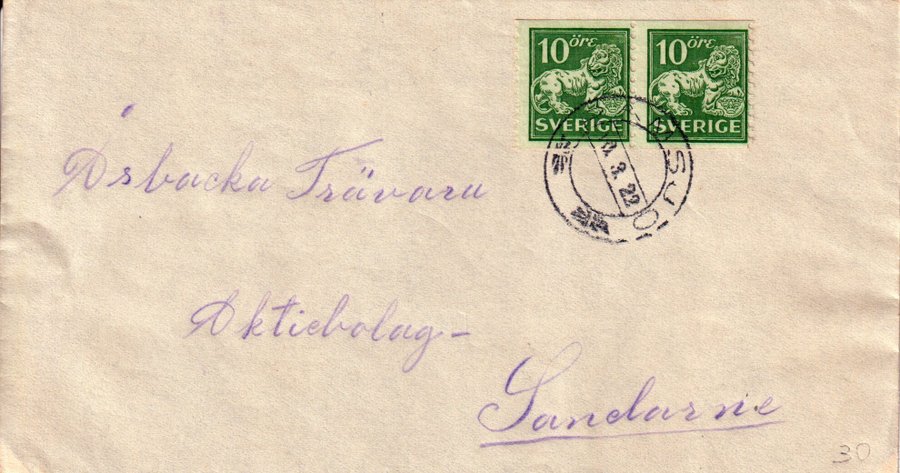 10 öre 10 öre
SVERIGE SVERIGE
3. 22
Åsbacka Trävaru
Aktiebolag-
Sandarne
30